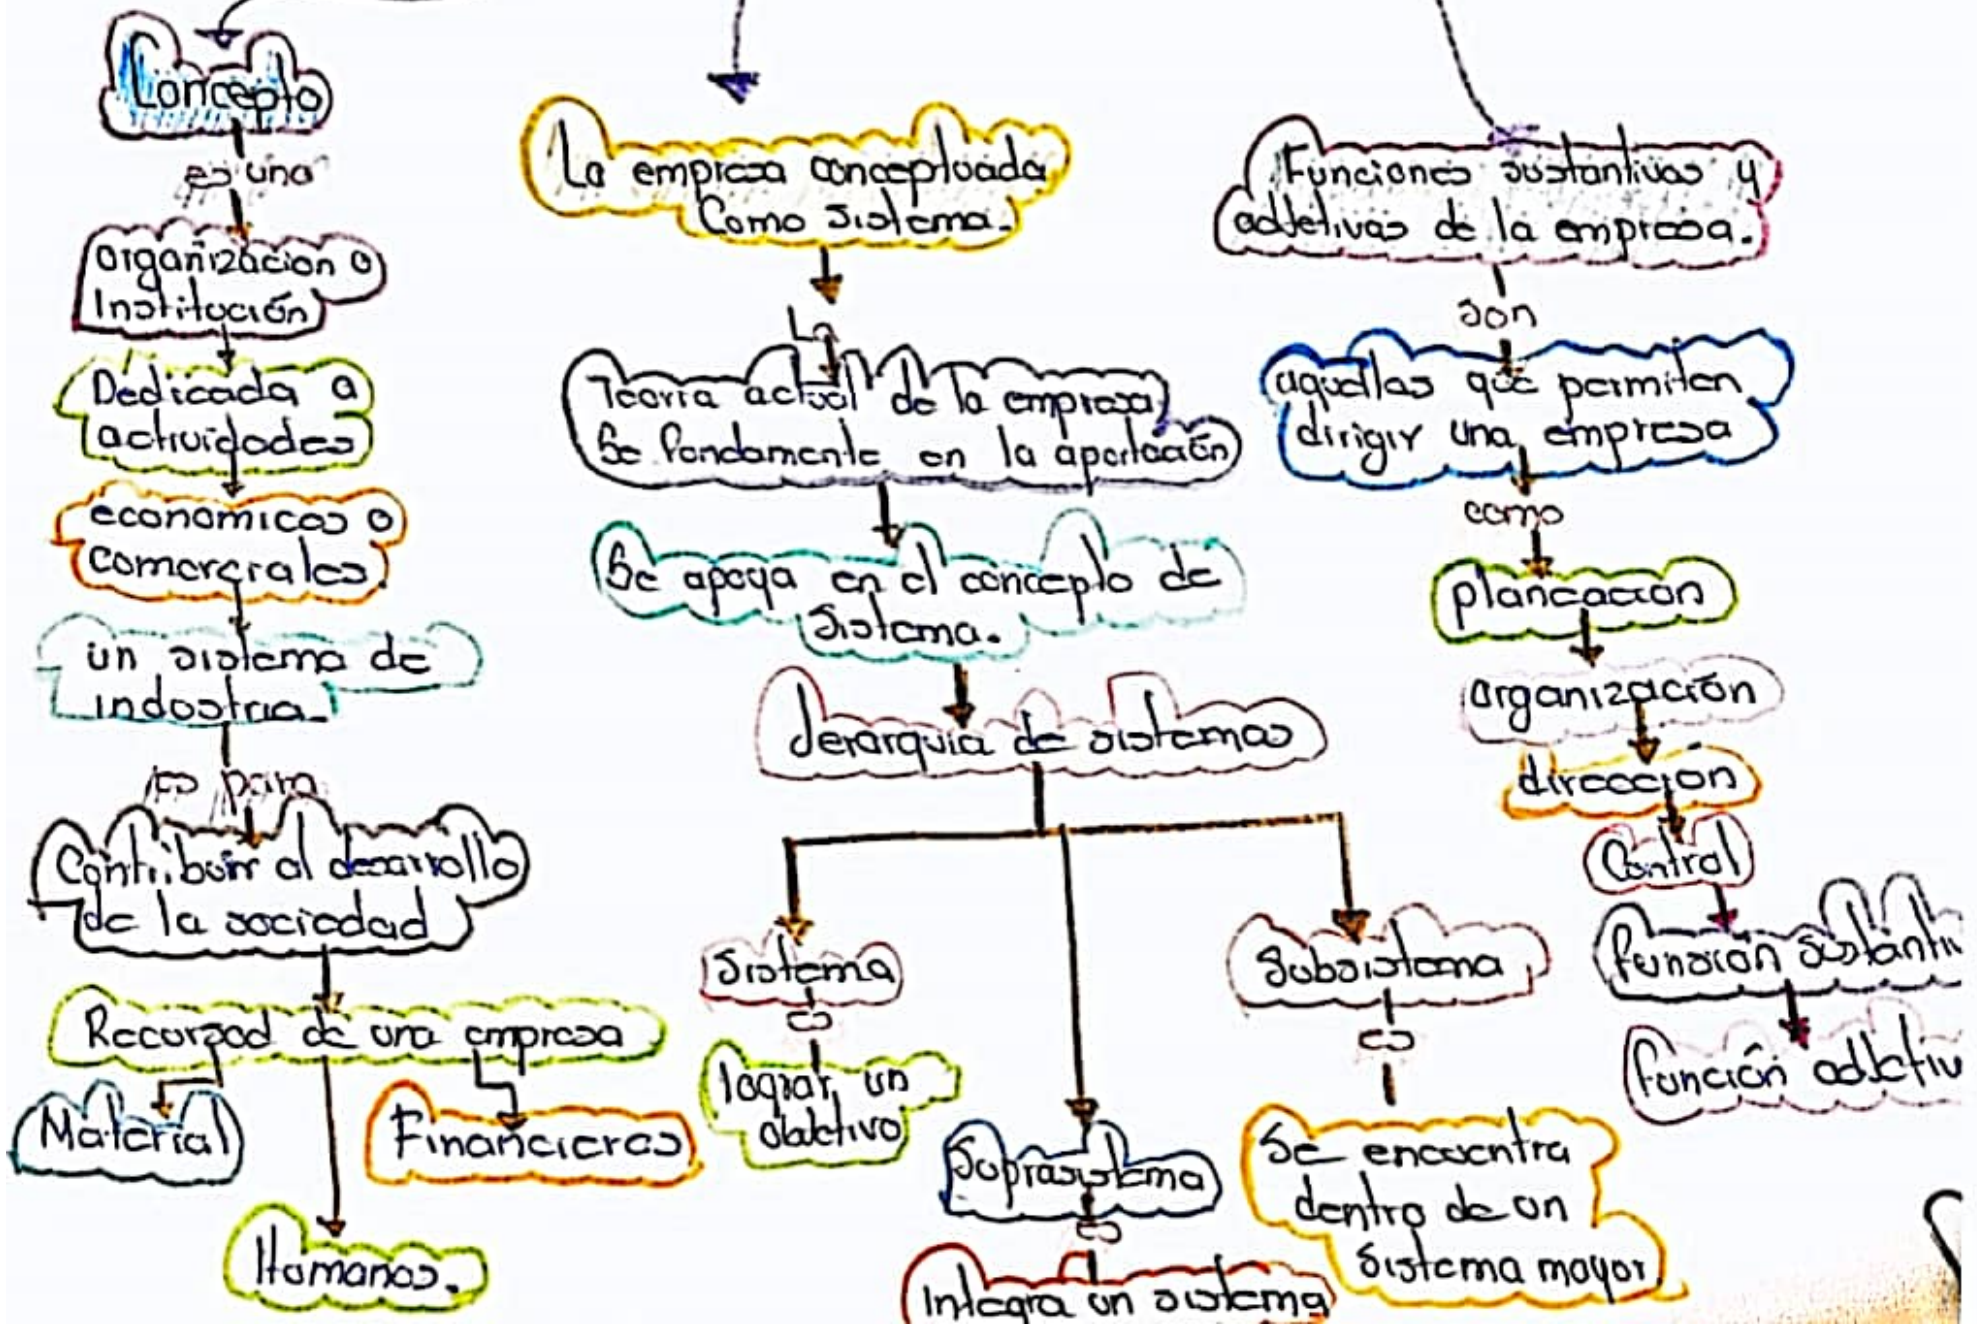 Concepto
es una
organización o
Institución
Dedicada a
actividades
economicas o
comerciales.
un sistema de
industria.
es para
Contribuir al desarrollo
de la sociedad
Recursod de una empresa
Material
Financieras
Humanos.
La empresa conceptuada
Como sistema.
La
Teoria actual de la empresa
Se fundamente en la aportación
Se apoya en el concepto de
Sistema.
Jerarquia de sistemas
Sistema
es
lograr un
objetivo
Suprasistema
es
Integra un sistema
Subsistema
es
Se encuentra
dentro de un
Sistema mayor
Funciones sustantivas y
adjetivas de la empresa.
son
aquellas que permiten
dirigir una empresa
como
planeación
organización
dirección
Control
función sustanti
función adjetiv